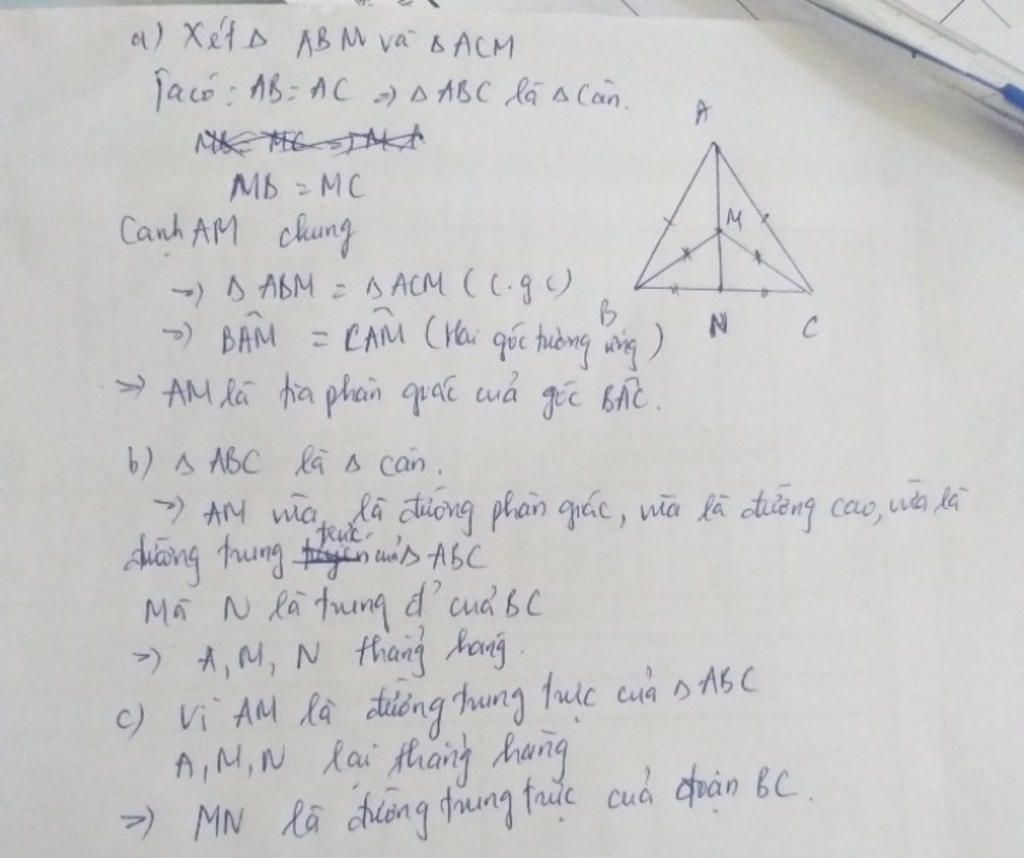 a) Xét Δ ABM và Δ ACM
Ta có: AB = AC => Δ ABC là Δ cân.
MB = MC
Cạnh AM chung
=> Δ ABM = Δ ACM (c.g.c)
=> BÂM = CÂM (Hai góc tương ứng)
=> AM là tia phân giác cuả góc BÂC.
A
M
B
N
C
b) Δ ABC là Δ cân.
=> AM vừa là đường phân giác, vừa là đường cao, vừa là
đường trung trực cuả Δ ABC
Mà N là trung đ' cuả BC
=> A, M, N thẳng hàng.
c) Vì AM là đường trung trực của Δ ABC
A, M, N lại thẳng hàng
=> MN là đường trung trực cuả đoạn BC.